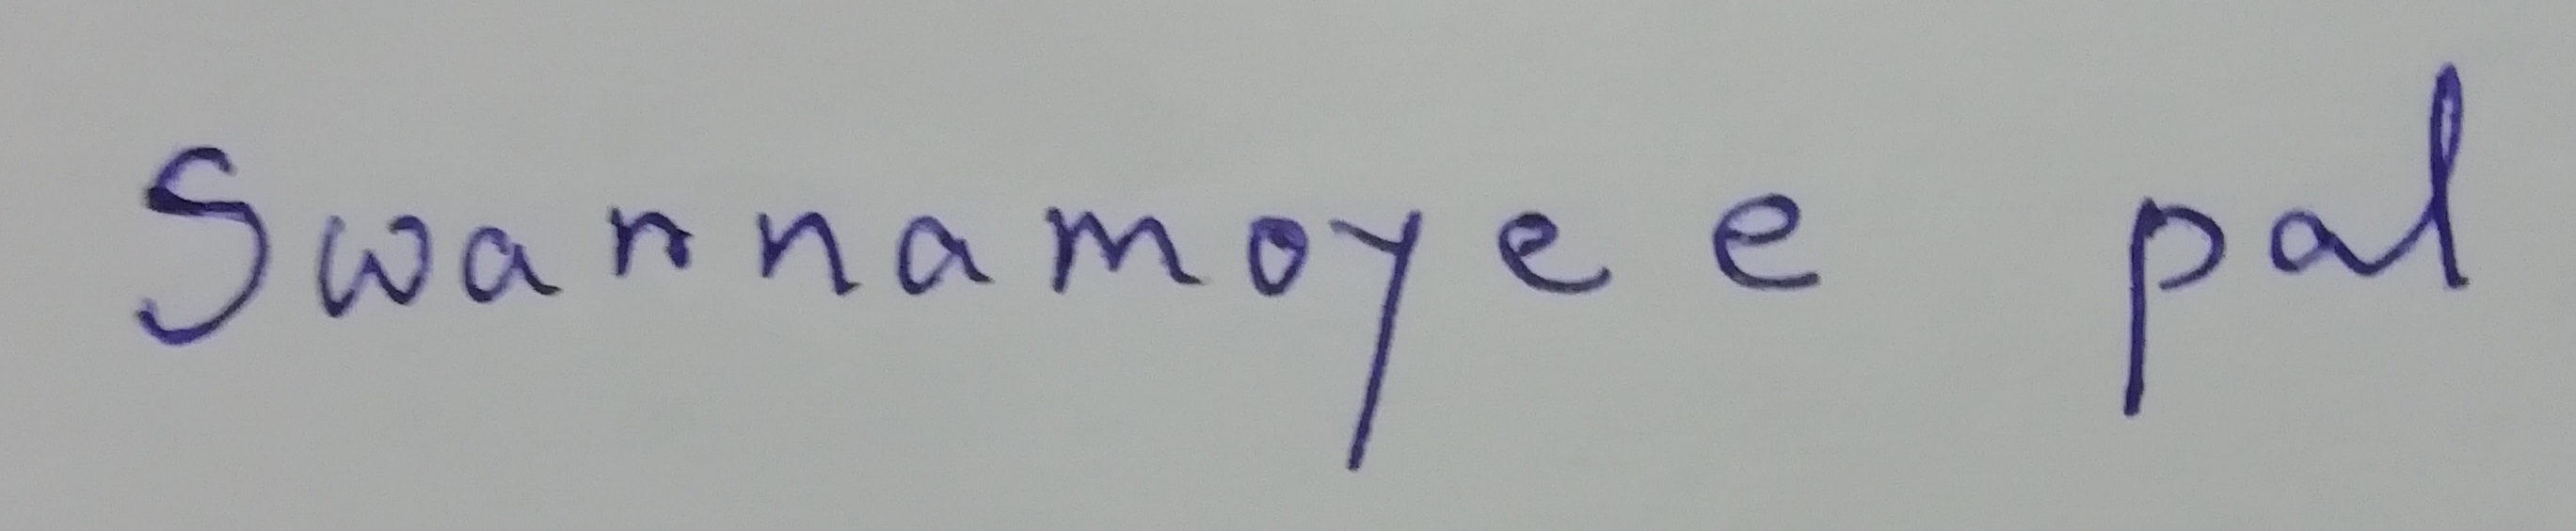 Swarnamoyee pal